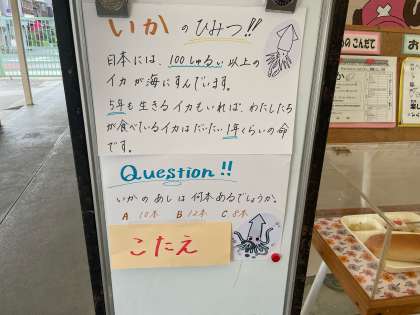 いかのひみつ!!
日本には、100しゅるい以上の
イカが海にすんでいます。
5年も生きるイカもいれば、わたしたち
が食べているイカはだいたい1年くらいの命
です。
Question!!
いかのあしは何本あるでしょうか。
A 10本 B 12本 C 8本
こたえ
のこんだて